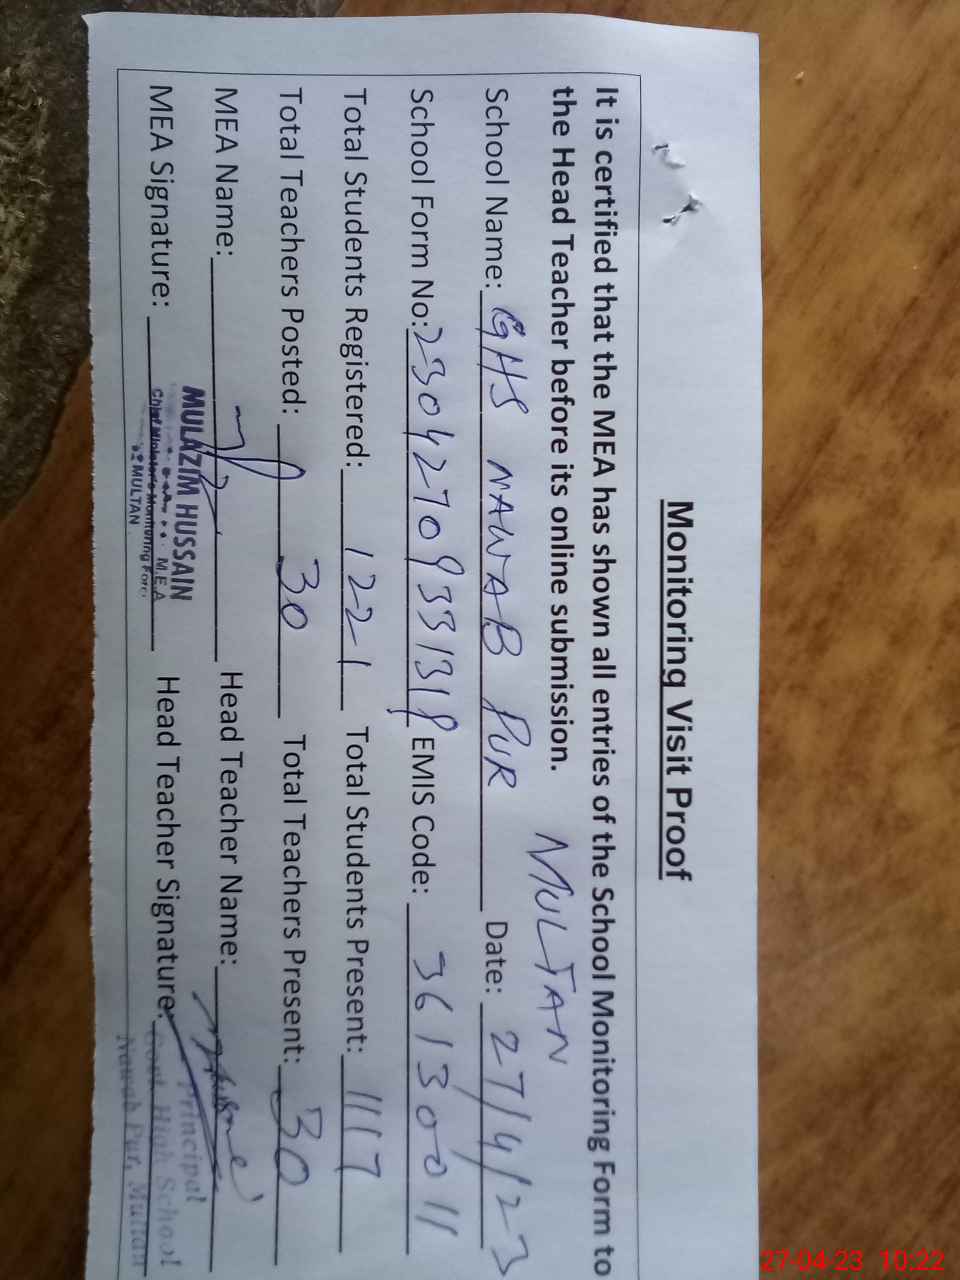 Monitoring Visit Proof
It is certified that the MEA has shown all entries of the School Monitoring Form to
the Head Teacher before its online submission.
MULTAN
School Name: GHS NAWAB PUR Date: 27/4/23
School Form No: EMIS Code: 36130011
Total Students Registered: 1221 Total Students Present: 1117
Total Teachers Posted: 30 Total Teachers Present: 30
MEA Name: Head Teacher Name:
MEA Signature: Head Teacher Signature:
MULAZIM HUSSAIN
M.E.A
Chief Minister's Monitoring Force
MULTAN
Principal
Govt. High School
Nawab Pur, Multan
27-04-23 10:22